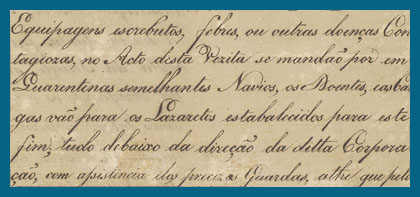 Equipagens escrebutos, febres, ou outras doenças Con
tagiozas, no Acto desta Vezita se mandaõ pôr em
Quarentinas semelhantes Navios, os Doentes, e as Ba
gas vaõ para os Lazaretos estabalecidos para este
fim; tudo debaixo da direçaõ da ditta Corpora
çaõ, com assistencia dos precizos Guardas, athe que pelo